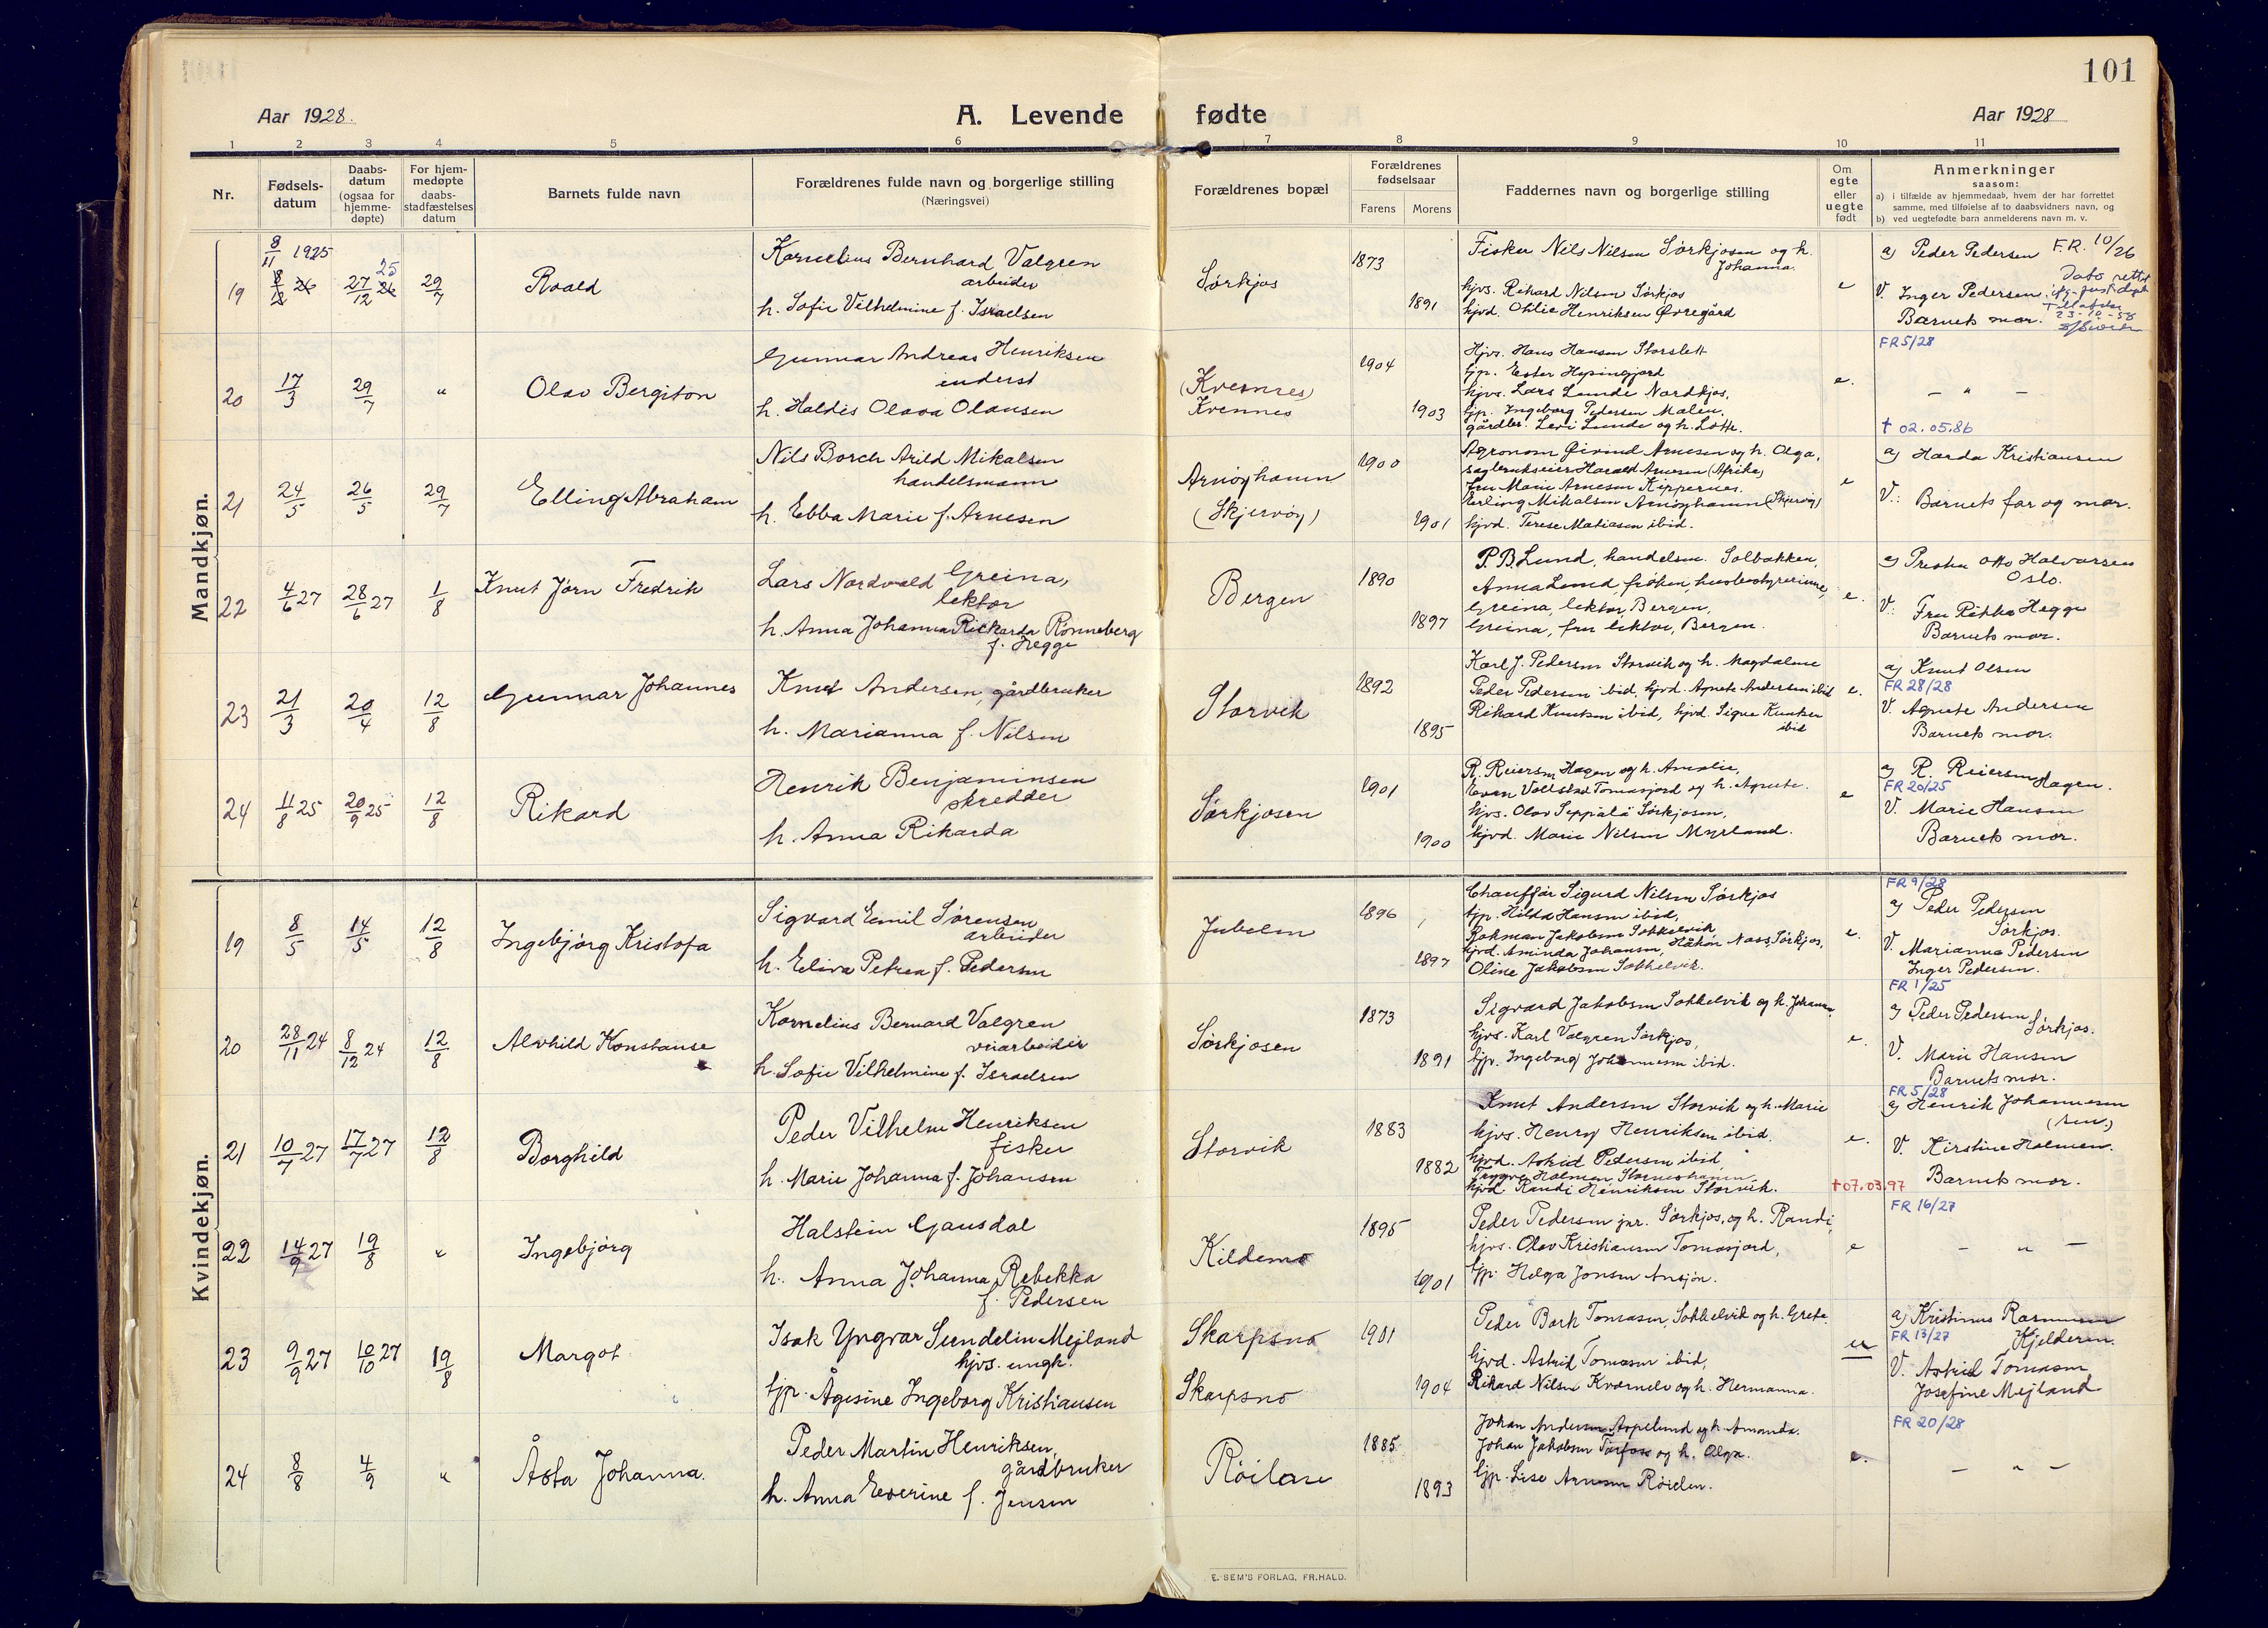 101
Aar 1928.
A. Levende fødte
Aar 1928
1 2 3 4 5 6 7 8 9 10 11
Nr.
Fødsels-
datum
Daabs-
datum
(ogsaa for
hjemme-
døpte)
For hjem-
medøpte
daabs-
stadfæstelses
datum
Barnets fulde navn
Forældrenes fulde navn og borgerlige stilling
(Næringsvei)
Forældrenes bopæl
Forældrenes
fødselsaar
Farens Morens
Faddernes navn og borgerlige stilling
Om
egte
eller
uegte
født
Anmerkninger
saasom:
a) i tilfælde av hjemmedaab, hvem der har forrettet
samme, med tilføielse af to daabsvidners navn, og
b) ved uegtefødte barn anmelderens navn m. v.
Mandkjøn.
19
8/11 1925
8/12 26
27/12 26 25
29/7
Roald
Kornelius Bernhard Valgren
arbeider
h. Sofie Vilhelmine f. Israelsen
Sørkjos
1873
1891
Fisker Nils Nilsen Sørkjosen og h.
Johanna.
hjvs. Rikard Nilsen Sørkjos
hjvd. Ohlie Henriksen Øvregård
e
a) Peder Pedersen F.R. 10/26
V. Inger Pedersen
Barnets mor.
Dato rettet
23-10-58
20
17/3
29/7
"
Olav Bergiton
Gunnar Andreas Henriksen
inderst
h. Haldis Olava Olausen
(Kvernnes)
Kvennes
1904
1903
Hjvs. Hans Hansen Storslett
tjp. Ester Hysingjord
hjvs. Lars Lunde Nordkjos,
tjp. Ingeborg Pedersen Malen,
gårdbr. Levi Lunde og h. Lotte.
e.
FR 5/28
— " —
† 02.05.86
21
24/5
26/5
29/7
Elling Abraham
Nils Borch Arild Mikalsen
handelsmann
h. Ebba Marie f. Arnesen
Arnøyhamn
(Skjervøy)
1900
1901
Agronom Øivind Arnesen og h. Olga,
sagbrukseier Harald Arnesen (Afrika)
fru Marie Arnesen Kippernes.
Erling Mikalsen Arnøyhamn (Skjervøy)
hjvd. Terese Matiasen ibid.
e
a) Harda Kristiansen
V.: Barnets far og mor.
22
4/6 27
28/6 27
1/8
Knut Jørn Fredrik
Lars Nordvald Greina,
lektor
h. Anna Johanna Rickarda Rønneberg
f. Hegge
Bergen
1890
1897
P. B. Lund, handelsm. Solbakken,
Anna Lund, frøken, husbestyrerinne,
Greina, lektor, Bergen,
Greina, fru lektor, Bergen.
e.
a) Presten Otto Halvorsen
Oslo.
V.: Fru Rikka Hegge
Barnets mor.
23
21/3
20/4
12/8
Gunnar Johannes
Knut Andersen, gårdbruker
h. Marianna f. Nilsen
Storvik
1892
1895
Karl J. Pedersen Storvik og h. Magdalene
Peder Pedersen ibid, hjvd. Agnete Andersen ibid
Rikard Knutsen ibid, hjvd. Signe Knutsen
ibid
e.
a) Knut Olsen
FR 28/28
V. Agnete Andersen
Barnets mor.
24
11/8 25
20/9 25
12/8
Rikard
Henrik Benjaminsen
skredder
h. Anna Rikarda
Sørkjosen
1901
1900
R. Reiersen Hagen og h. Amalie,
Even Vollstad Tomasjord og h. Agnete.
hjvs. Olav Seppälä Sørkjosen,
hjvd. Marie Nilsen Myrland.
e
a) R. Reiersen Hagen.
FR 20/25
V. Marie Hansen
Barnets mor.
Kvindekjøn.
19
8/5
14/5
12/8
Ingebjørg Kristofa
Sigvard Emil Sørensen
arbeider
h. Eliva Petrea f. Pedersen
Jubelen
1896
1897
Chauffør Sigurd Nilsen Sørkjos
tjp. Hilda Hansen ibid,
Hjohman Jakobsen Sokkelvik
hjvd. Aminda Johansen, Håkon Nass, Sørkjos,
Oline Jakobsen Sokkelvik.
e.
FR 9/28
a) Peder Pedersen
Sørkjos.
V. Marianna Pedersen
Inger Pedersen.
20
28/11 24
8/12 24
12/8
Alvhild Konstanse
Kornelius Bernard Valgren
veiarbeider
h. Sofie Vilhelmine f. Israelsen
Sørkjosen
1873
1891
Sigvard Jakobsen Sokkelvik og h. Johanna,
hjvs. Karl Valgren Sørkjos,
tjp. Ingeborg Johannesen ibid.
e.
FR 1/25
a) Peder Pedersen
Sørkjos.
V. Marie Hansen
Barnets mor.
21
10/7 27
17/7 27
12/8
Borghild
Peder Vilhelm Henriksen
fisker
h. Marie Johanna f. Johansen
Storvik
1883
1882
Knut Andersen Storvik og h. Marie
hjvs. Henry Henriksen ibid.
hjvd. Astrid Pedersen ibid,
Trygve Holmen Storneshamn,
hjvd. Randi Henriksen Storvik.
e.
†07.03.97
FR 5/28
a) Henrik Johannesen
(sen.)
V. Kirstine Holmen.
Barnets mor.
22
14/9 27
19/8
"
Ingebjørg
Halstein Gausdal
h. Anna Johanna Rebekka
f. Pedersen
Kildemo
1895
1901
Peder Pedersen jnr. Sørkjos, og h. Randi,
hjvs. Olav Kristiansen Tomasjord,
tjp. Helga Jonsen Ansjøn.
e
FR 16/27
— " —
23
9/9 27
10/10 27
19/8
Margot
Isak Yngvar Sundelin Mejland
hjvs. ungk.
tjp. Ågesine Ingeborg Kristiansen
Skarpsno
Skarpsno
1901
1904
Peder Bork Tomasen, Sokkelvik og h. Grete.
hjvd. Astrid Tomasen ibid,
Rikard Nilsen Kvernelv og h. Hermanna.
u
a) Kristinus Rasmussen
FR 13/27
Kjelderen.
V. Astrid Tomasen
Josefine Mejland
24
8/8
4/9
"
Åsta Johanna.
Peder Martin Henriksen,
gårdbruker
h. Anna Everine f. Jensen
Røilen
1885
1893
Johan Andersen Aspelund og h. Amanda.
Johan Jakobsen Tørfoss og h. Olga.
tjp. Lise Arnesen Røielen.
e.
FR 20/28
— " —
E. SEM'S FORLAG, FR.HALD.